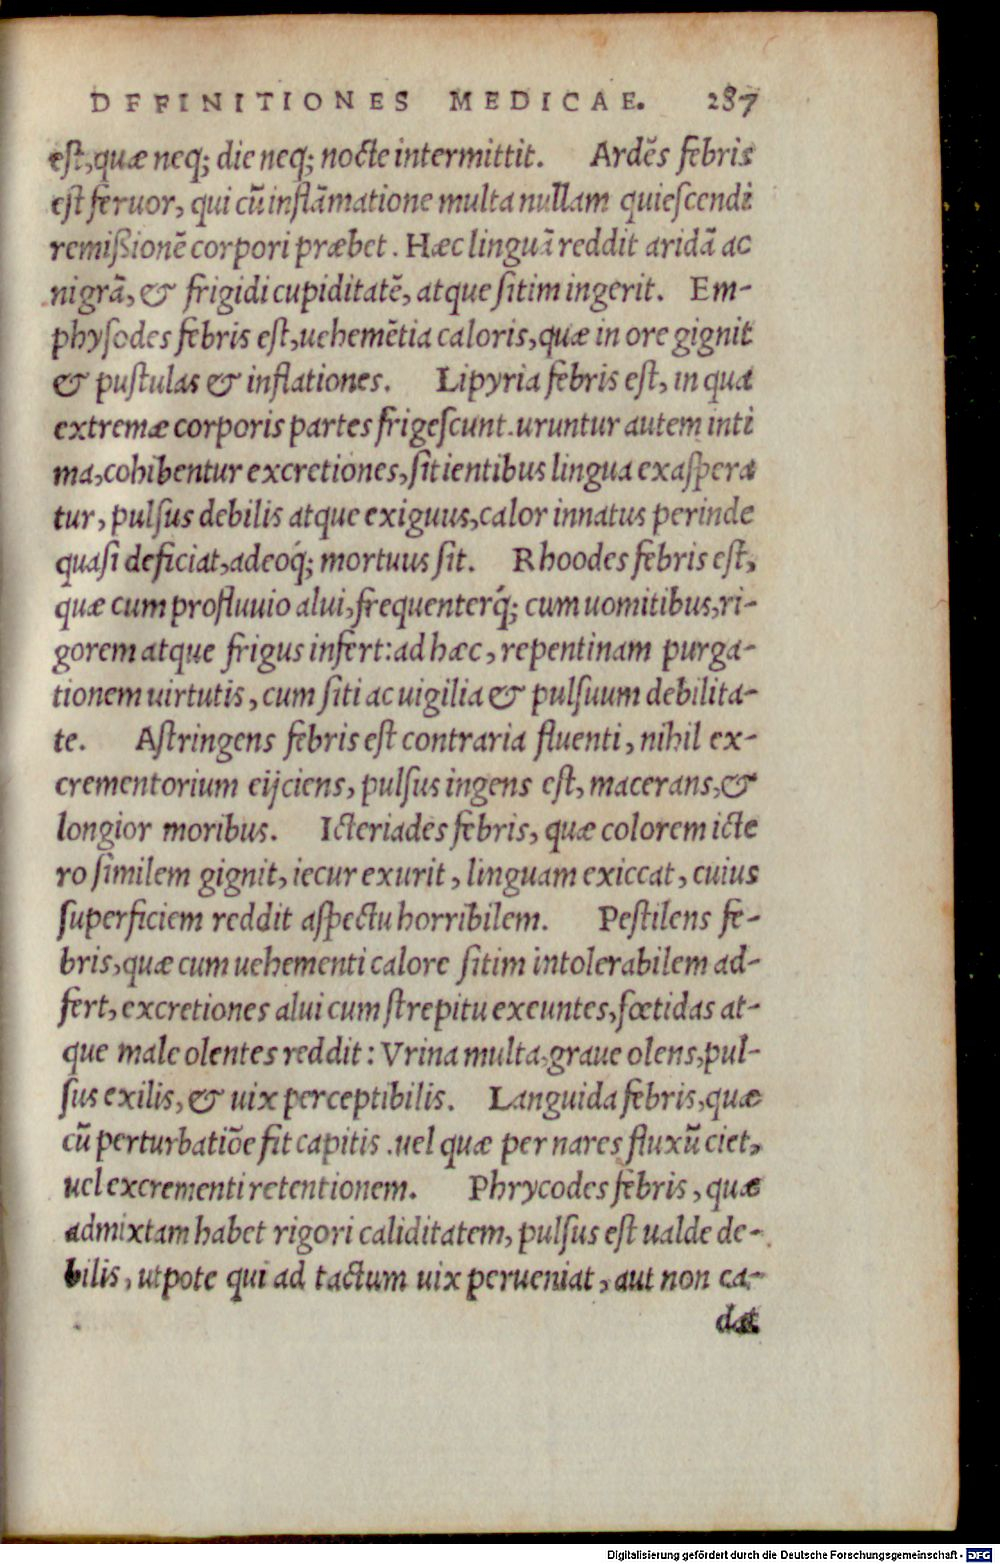 DEFINITIONES MEDICAE. 287
est, quæ neq; die neq; nocte intermittit. Ardẽs febris
est feruor, qui cũ inflãmatione multa nullam quiescendi
remißionẽ corpori præbet. Hæc linguã reddit aridã ac
nigrã, & frigidi cupiditatẽ, atque sitim ingerit. Em-
physodes febris est, uehemẽtia caloris, quæ in ore gignit
& pustulas & inflationes. Lipyria febris est, in qua
extremæ corporis partes frigescunt. uruntur autem inti
ma, cohibentur excretiones, sitientibus lingua exaspera
tur, pulsus debilis atque exiguus, calor innatus perinde
quasi deficiat, adeoq́; mortuus sit. Rhoodes febris est,
quæ cum profluuio alui, frequenterq́; cum uomitibus, ri-
gorem atque frigus infert: ad hæc, repentinam purga-
tionem uirtutis, cum siti ac uigilia & pulsuum debilita-
te. Astringens febris est contraria fluenti, nihil ex-
crementorium eijciens, pulsus ingens est, macerans, &
longior moribus. Icteriades febris, quæ colorem icte
ro similem gignit, iecur exurit, linguam exiccat, cuius
superficiem reddit aspectu horribilem. Pestilens fe-
bris, quæ cum uehementi calore sitim intolerabilem ad-
fert, excretiones alui cum strepitu exeuntes, fœtidas at-
que male olentes reddit: Vrina multa, graue olens, pul-
sus exilis, & uix perceptibilis. Languida febris, quæ
cũ perturbatiõe fit capitis. uel quæ per nares fluxũ ciet,
uel excrementi retentionem. Phrycodes febris, quæ
admixtam habet rigori caliditatem, pulsus est ualde de-
bilis, utpote qui ad tactum uix perueniat, aut non ca-
dat
Digitalisierung gefördert durch die Deutsche Forschungsgemeinschaft - DFG